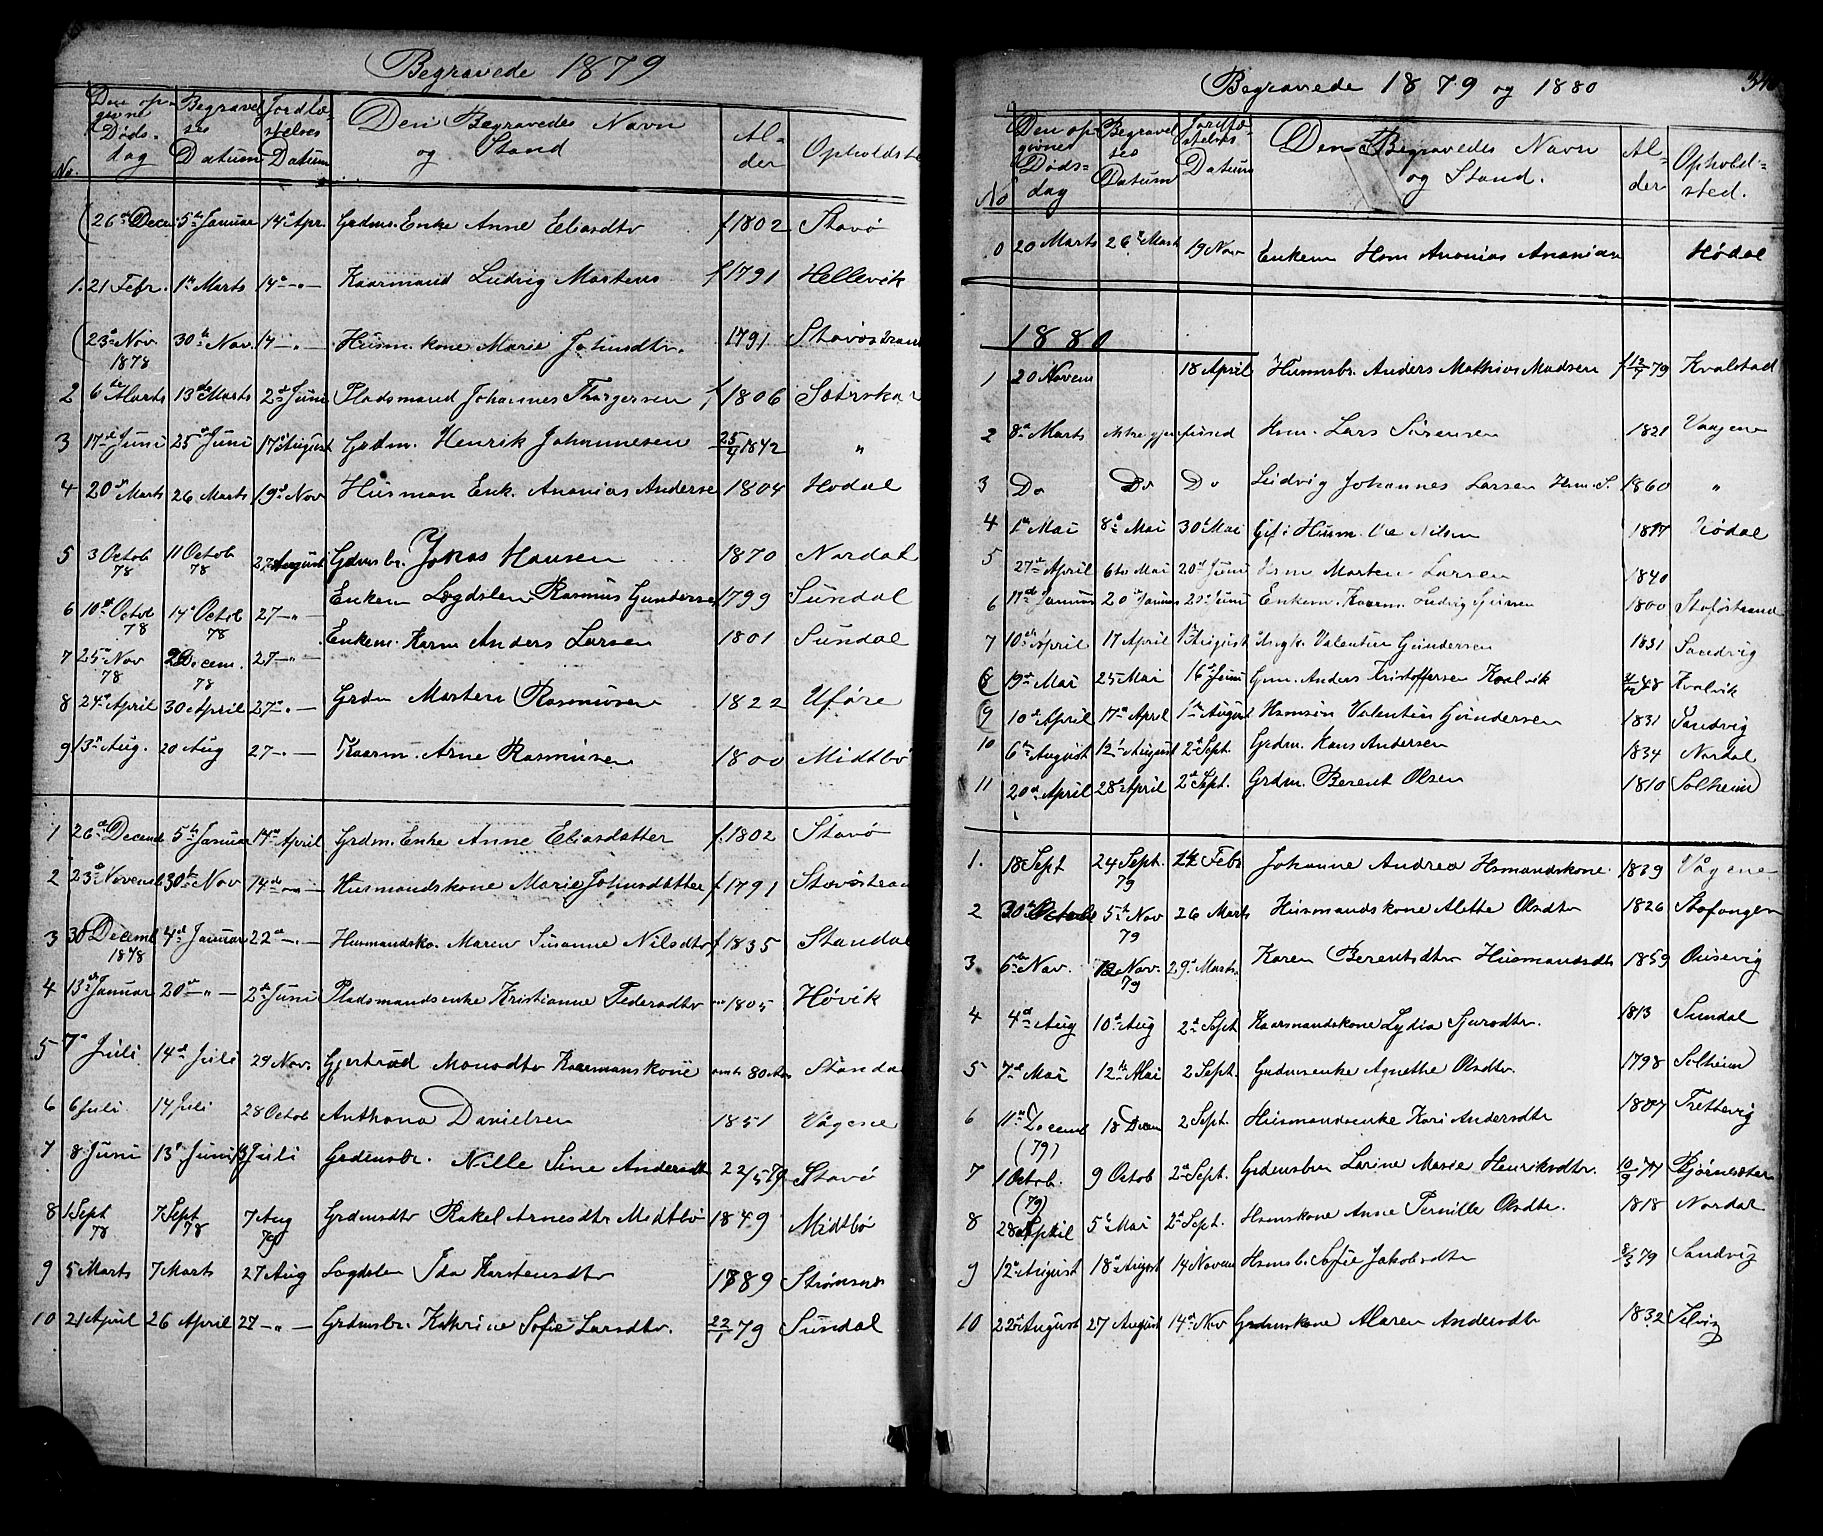 Begravede 1879
No. Den opgivne Dødsdag Begravelses Datum Jordfæstelses Datum Den Begravedes Navn og Stand Alder Opholdst
26de Decm. 5te Januar 14de Apr. Grdms. Enke Anne Eliasdtr f. 1802 Stavø
1. 21 Febr. 1te Marts 14de -"- Kaarmand Ludvig Martens f. 1791 Hellevik
23de Nov 1878 30te Nov. 14 -"- Husm. kone Marie Johnsdtr. 1791 Stavøstrand
2 6te Marts 13de Marts 2de Juni Pladsmand Johannes Thorgersen f. 1806 Sætrskar
3 17de Juni 25de Juni 17de August Grdm. Henrik Johannesen 25/4 1842 "
4 20de Marts 26 Marts 19de Nov Husman Enk. Ananias Anderse 1804 Hødal
5 3 Octob 78 11 Octob 78 27 August Grdmsbr. Jonas Hansen 1870 Nordal
6 10de Octob 78 14de Octob 78 27 -"- Enkem Lægdslem Rasmus Gunderse 1799 Sundal
7 25de Nov 78 2 Decem. 78 27 -"- Enkem. Karm Anders Larsen 1801 Sundal
8 24de April 30 April 27de -"- Grdm Marten Rasmusen 1822 Uføre
9 13de Aug. 20 Aug 27 -"- Kaarm. Arne Rasmusen 1800 Midtbø
1 26de Decemb 5te Januar 14de April Grdm. Enke Anne Eliasdatter f. 1802 Stavø
2 23de Novemb 30te Nov 14de -"- Husmandskone Marie Johnsdatter f. 1791 Stavøstran
3 30 Decemb 1878 4de Januar 22de -"- Husmandsko. Maren Susanne Nilsdtr f. 1835 Standal
4 13de Januar 20de -"- 2de Juni Pladsmandsenke Kristianne Pedersdtr 1805 Høvik
5 7de Juli 14de Juli 29 Nov. Gjertrud Monsdtr Kaarmanskone omtr 80 Aar Standal
6 6 Juli. 14 Juli 28 Octob Anthona Danielsen 1851 Vågene
7 8 Juni 13de Juni 13 Juli Grdmsbr. Nille Sine Andersdtr 22/5 79 Stavø
8 1 Sept 78 7 Sept 78 7 Aug 79 Grdmsdtr Rakel Arnesdtr Midtbø 1849 Midtbø
9 5 Marts 7 Marts 27 Aug Lægdslem Ida Karstensdtr 1789 Strømsnes
10 21 April 26 April 27 -"- Grdmsbr. Kathrine Sofie Larsdtr. 22/1 79 Sundal
Begravede 1879 og 1880
No Den opgivne Dødsdag Begravelses Datum Jordfæstelses Datum Den Begravedes Navn og Stand. Alder Opholdsted.
20 Marts 26de Mart 19 Nov Enkem Hsm Ananias Ananias Hødal
1880
1 20 Novem 18 April Husmsbr. Anders Mathias Madsen f 12/7 79 Kvalstad
2 8de Marts ikke gjenfund Hsm. Lars Sørensen 1821 Vaagene
3 Do Do Do Ludvig Johannes Larsen Hsm. S. 1860 "
4 1te Mai 8de Mai 30te Mai Gift Husm. Ole Nilsen 1817 Hødal
5 27de April 6te Mai 20de Juni Hsm Marten Larsen 1840
6 17de Januar 20de Januar 20de Juni Enkem. Kaarm. Ludvig 1800 Stoføstrand
7 10de April 17 April 1te August Valentin Gundersen 1831 Sandvig
8 19de Mai 25 Mai 16de Juni Gm. Anders Kristoffersen Kvalvik 48 Kvalvik
9 10de April 17de April 1te August Hsmsøn Valentin Gundersen 1831 Sandvig
10 6te August 12te August 2de Sept. Grdm. Hans Andersen 1834 Nordal
11 20de April 28de April 2de Sept. Grdm. Berent Olsen 1810 Solheim
1. 18 Sept 24 Sept. 79 Febr Johanne Andrea Hsmandskone. 1839 Vågene
2 30te Octob 5te Nov 79 26 Marts Husmandskone Alette Olsdtr 1826 Stafongen
3 6te Nov. 12 Nov. 79 29de Marts. Karen Berentsdtr Husmandsdtr 1859 Ousevig
4 4de Aug 10de Aug 2de Sept Kaarmandskone Lydia Sjursdtr. 1813 Sundal
5 7de Mai 12te Mai 2 Sept. Grdmsenke Agnethe Olsdtr 1798 Solheim
6 11te Decemb (79) 18 Decm 2 Sept. Husmandsenke Kari Andersdtr 1807 Trettevig
7 1 Octob. (79) 9 Octob 2de Sept. Grdmsbrn Larine Marie Henriksdtr. 10/9 77 Bjørnesæter
8 28 April 5te Mai 2de Sept. Hsmskone Anne Pernille Olsdtr. 1818 Nordal
9 12te August 18de August 14 Novem Hsmsb. Sofie Jakobsdtr 8/3 79 Sandvig
10 22de August 27 August 14de Nov Grdmskone Maren Andersdtr 1832 Selvig